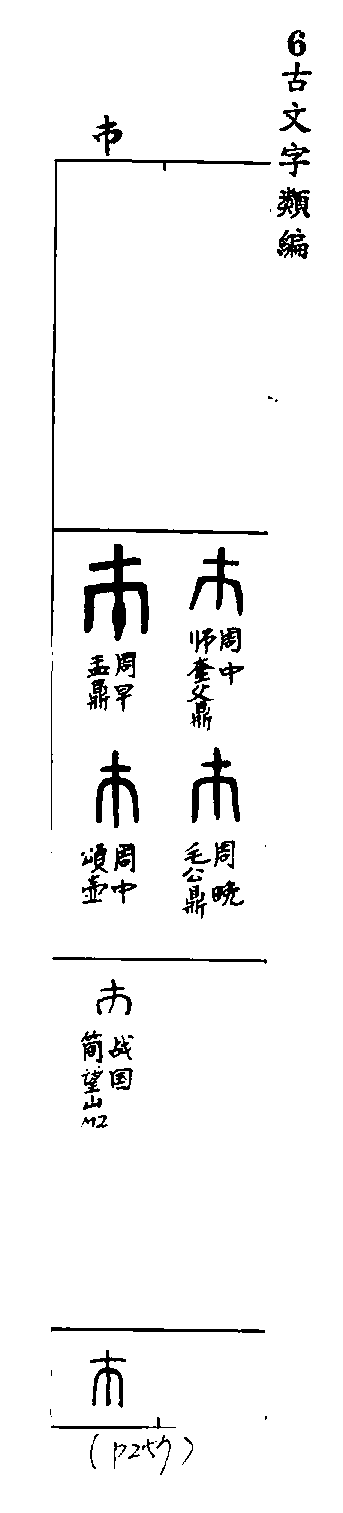 6古文字類編
市
周中
师奎父鼎
周早
盂鼎
周晚
毛公鼎
周中
頌壶
战国
简望山M2
(P257)